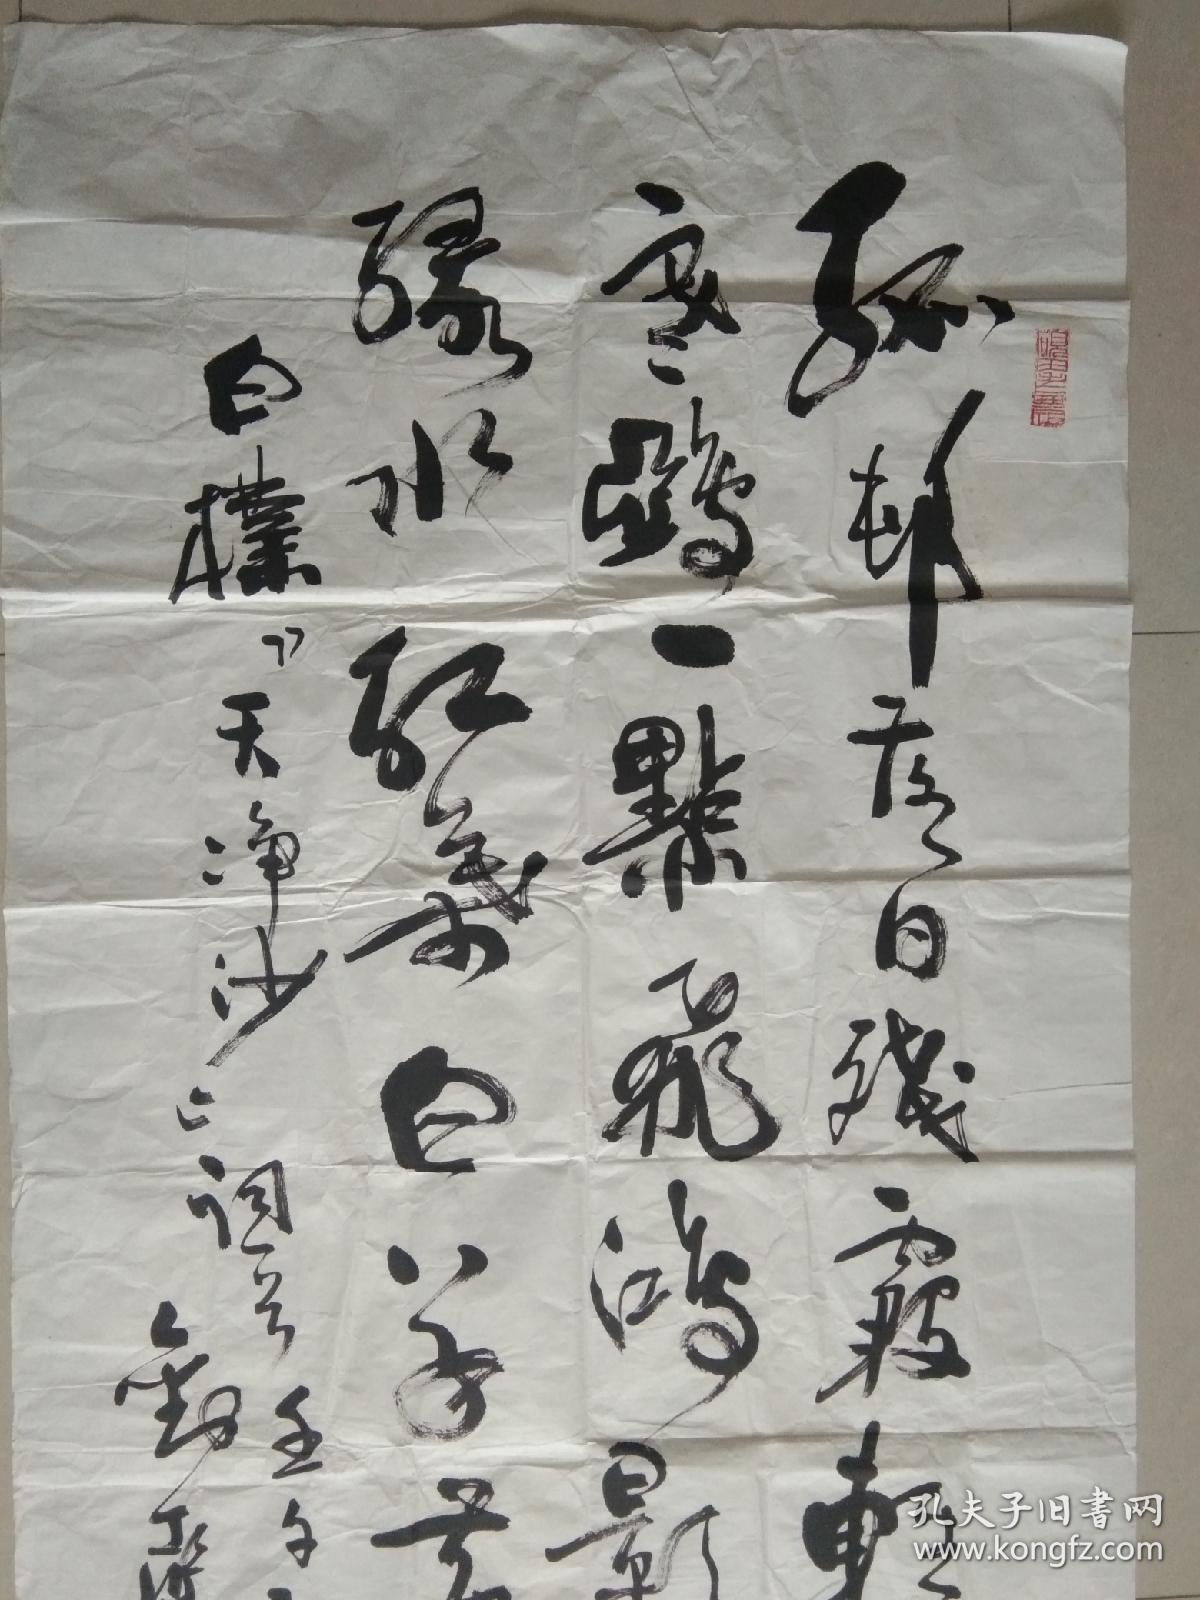 孤邨落日殘霞輕
寒鴉一點飛鴻影
綠水紅葉白草黃
白樸《天淨沙》詞意 壬午
劉
孔夫子旧书网
www.kongfz.com